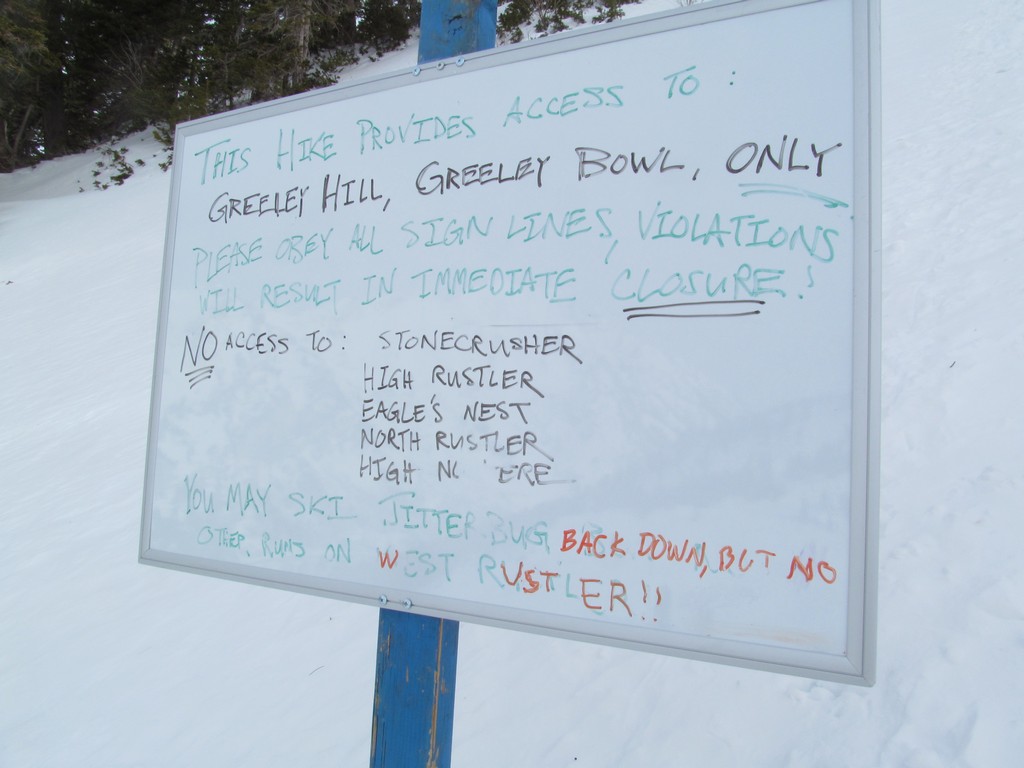 THIS HIKE PROVIDES ACCESS TO:
GREELEY HILL, GREELEY BOWL, ONLY
PLEASE OBEY ALL SIGN LINES, VIOLATIONS
WILL RESULT IN IMMEDIATE CLOSURE!
NO ACCESS TO: STONECRUSHER
HIGH RUSTLER
EAGLE'S NEST
NORTH RUSTLER
HIGH
YOU MAY SKI JITTERBUG BACK DOWN, BUT NO
OTHER RUNS ON WEST RUSTLER!!